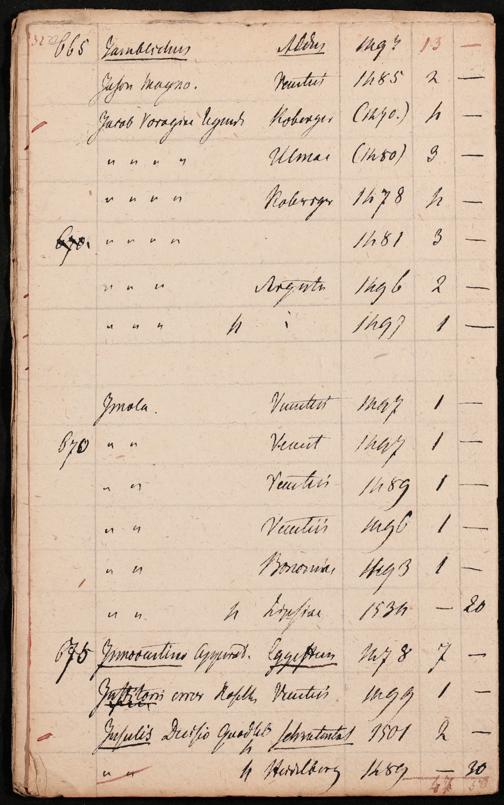 665 Jamblichus Aldus 1497 13 —
Jason Mayno. Venetiis 1485 2 —
Jacob Voragine legends Koberger (1470.) 4 —
" " " " Ulmae (1480) 3 —
" " " " Koberger 1478 4 —
670. " " " " 1481 3 —
" " " Argente 1496 2 —
" " " 4 " 1497 1 —
Imola. Venetiis 1497 1 —
670 " " Venet 1497 1 —
" " Venetiis 1489 1 —
" " Venetiis 1496 1 —
" " Bononiae 1493 1 —
" " 4 Lipsiae 1534 — 20
675 Innocentius Apparat. Eggesteyn 1478 7 —
Institoris error Venetiis 1499 1 —
Insulis Decisio Quodlib 4 1501 2 —
" " 4 Heidelberg 1489 — 30
47